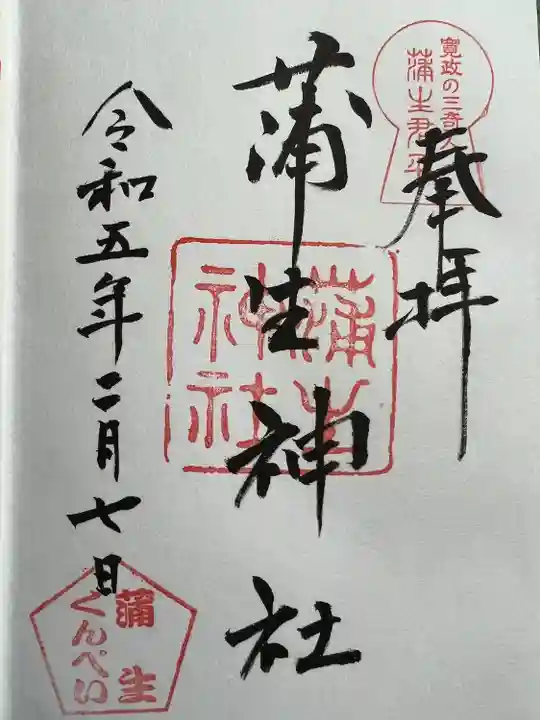 寛政の三奇人
蒲生君平
奉拝
蒲生神社
蒲生神社
令和五年二月七日
蒲生
くんぺい